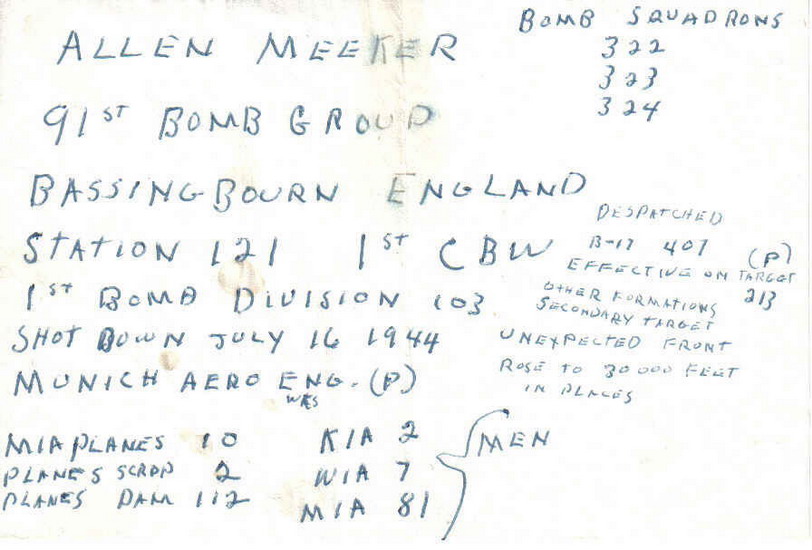 ALLEN MEEKER
91ST BOMB GROUP
BASSINGBOURN ENGLAND
STATION 121 1ST CBW
1ST BOMB DIVISION 103
SHOT DOWN JULY 16 1944
MUNICH AERO ENG. (P)
WKS
MIA PLANES 10
PLANES SCRAP 2
PLANES DAM 112
KIA 2
WIA 7
MIA 81
MEN
BOMB SQUADRONS
322
323
324
DESPATCHED
B-17 407 (P)
EFFECTIVE ON TARGET
213
OTHER FORMATIONS
SECONDARY TARGET
UNEXPECTED FRONT
ROSE TO 30000 FEET
IN PLACES